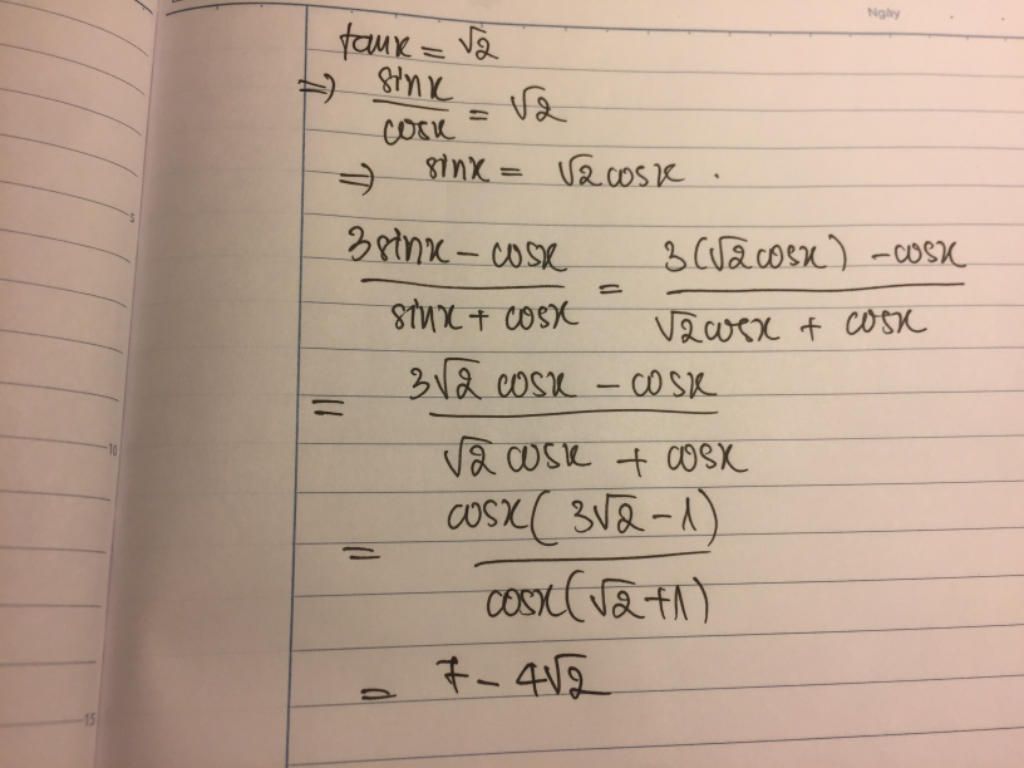 Ngày
tanx = √2
⇒ sinx/cosx = √2
⇒ sinx = √2 cosx .
(3 sinx - cosx)/(sinx + cosx) = (3(√2 cosx) - cosx)/(√2 cosx + cosx)
5
= (3√2 cosx - cosx)/(√2 cosx + cosx)
10
= (cosx(3√2 - 1))/(cosx(√2 + 1))
= 7 - 4√2
15